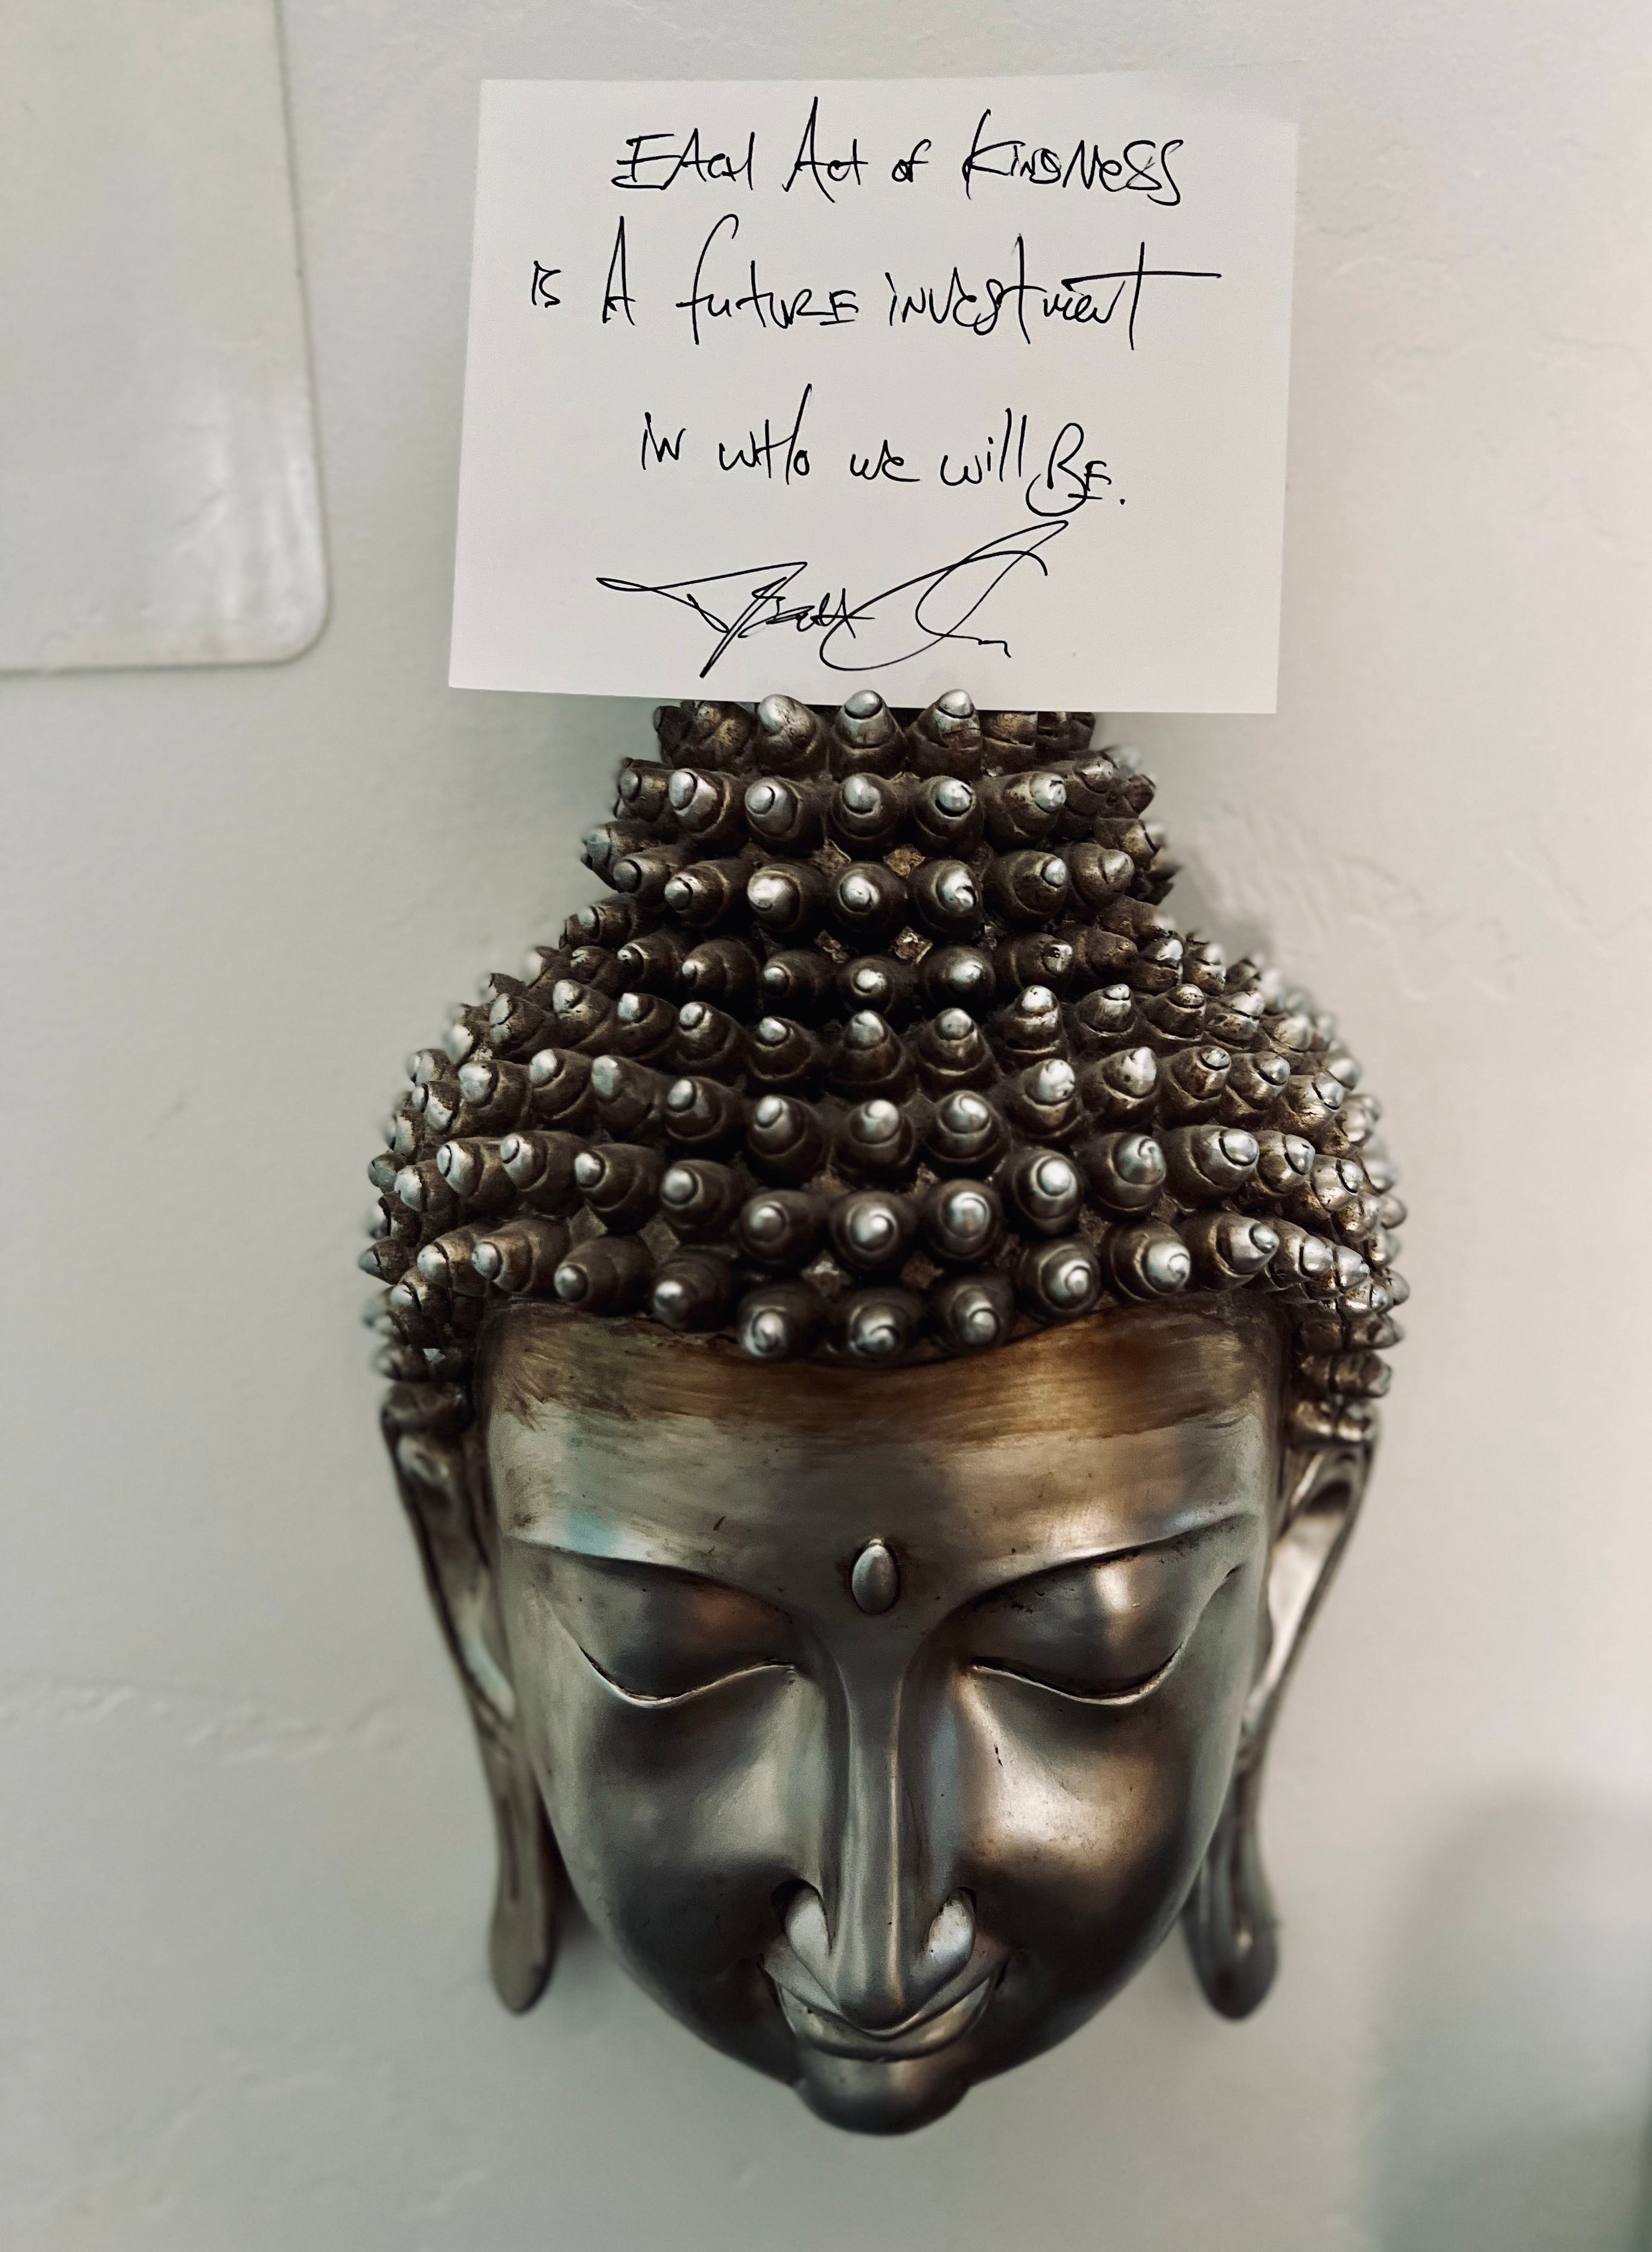 EAch Act of KiNDNeSS
is A futuRE iNVEStmENT
iN wHo we will BE.